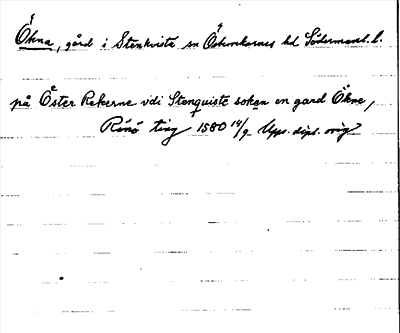 Ökna, gård i Stenkvista sn Österrekarnes hd Södermanl. l.
på Öster Rekerne vdi Stenquiste sokæn en gard Ökne,
Rönö ting 1580 14/9 Upps. dipl. orig